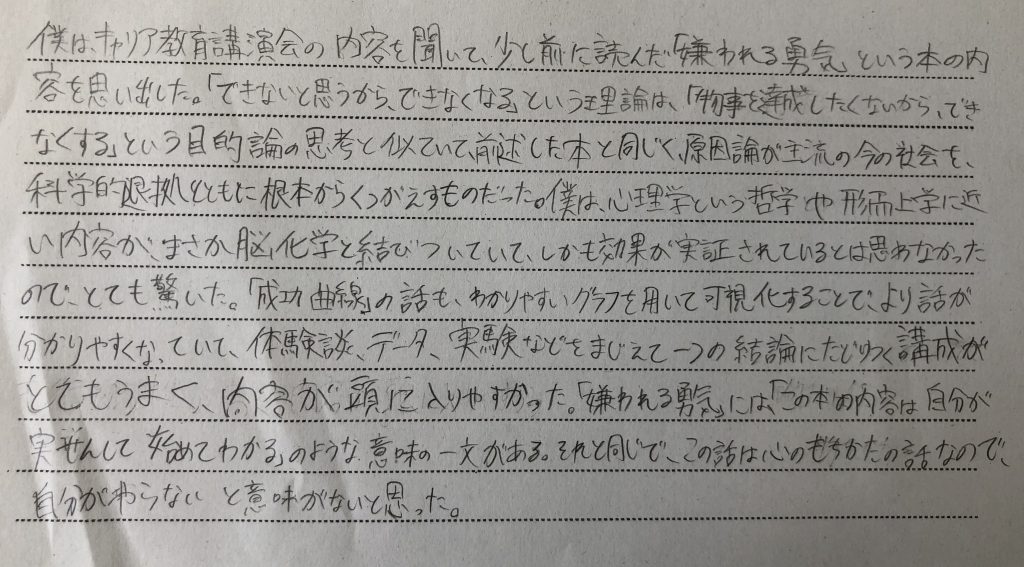 僕は、キャリア教育講演会の内容を聞いて、少し前に読んだ「嫌われる勇気」という本の内
容を思い出した。「できないと思うから、できなくなる」という理論は、「物事を達成したくないから、でき
なくする」という目的論の思考と似ていて、前述した本と同じく、原因論が主流の今の社会を、
科学的根拠とともに根本からくつがえすものだった。僕は、心理学という哲学や形而上学に近
い内容が、まさか脳化学と結びついていて、しかも効果が実証されているとは思わなかった
ので、とても驚いた。「成功曲線」の話も、わかりやすいグラフを用いて可視化することで、より話が
分かりやすくなっていて、体験談、データ、実験などをまじえて一つの結論にたどりつく講成が
とてもうまく、内容が頭に入りやすかった。「嫌われる勇気」には、「この本の内容は自分が
実せんして始めてわかる」のような意味の一文がある。それと同じで、この話は心のもちかたの話なので、
自分がわらないと意味がないと思った。